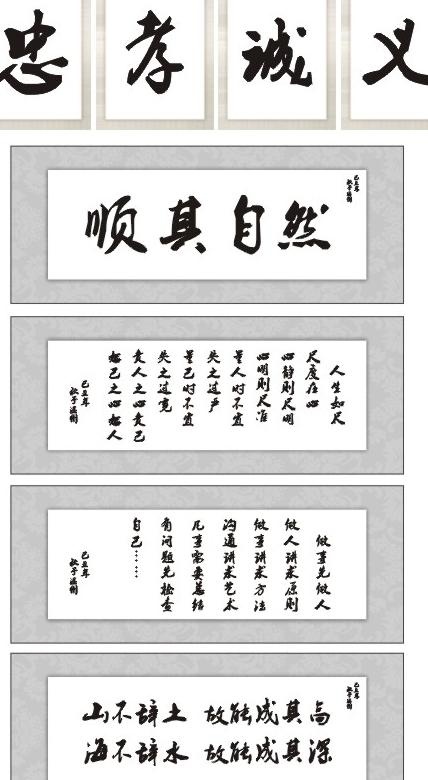 忠 孝 诚 义
顺其自然
己丑年
人生如尺
尺度在心
心静则尺明
心明则尺准
量人时不宜
失之过严
量己时不宜
失之过宽
责人之心责己
恕己之心恕人
己丑年
做事先做人
做人讲求原则
做事讲求方法
沟通讲求艺术
凡事需要总结
有问题先检查
自己……
己丑年
山不辞土 故能成其高
海不辞水 故能成其深
己丑年